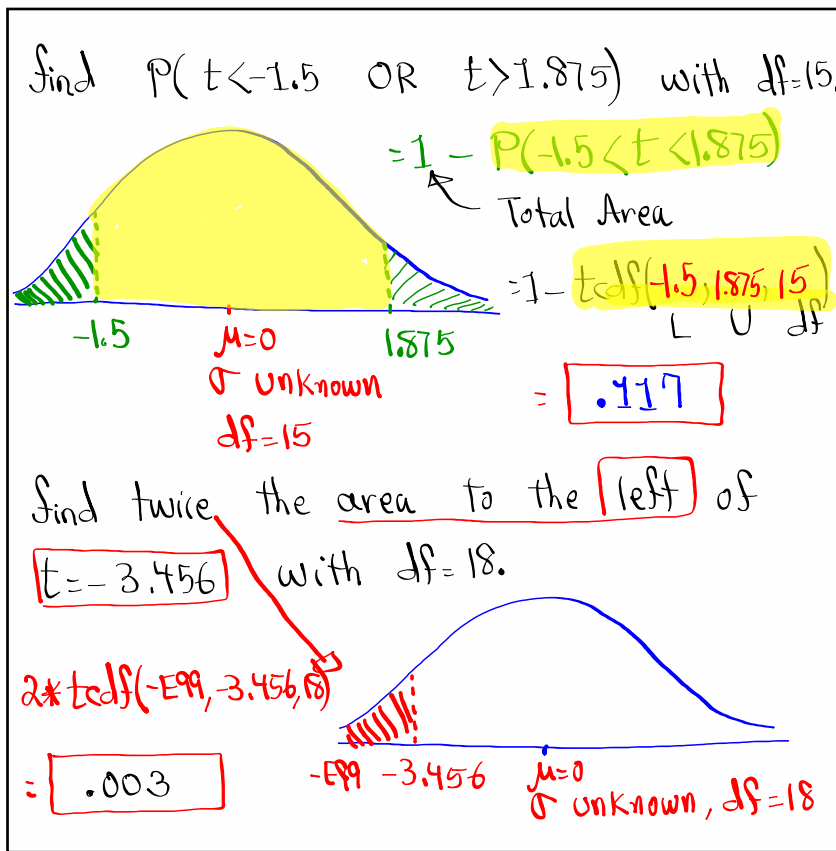 find P( t<-1.5 OR t>1.875) with df=15.
=1 - P(-1.5 < t < 1.875)
Total Area
=1- tcdf(-1.5, 1.875, 15)
L U df
-1.5 μ=0 1.875
σ unknown
df=15
= .117
find twice the area to the left of
t=-3.456 with df=18.
2*tcdf(-E99, -3.456, 18)
= .003
-E99 -3.456 μ=0
σ unknown, df=18